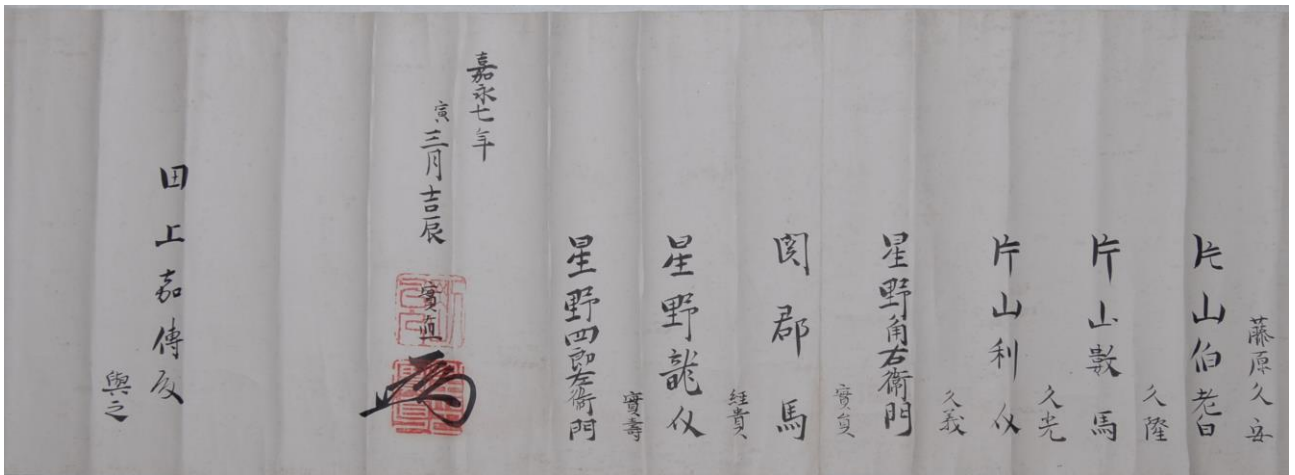 藤原久安
片山伯耆
久隆
片山數馬
久光
片山利介
久義
星野角右衛門
實員
関郡馬
経貴
星野龍介
實壽
星野四郎左衛門
嘉永七年
寅三月吉辰
實直
田上嘉傳殿
與之